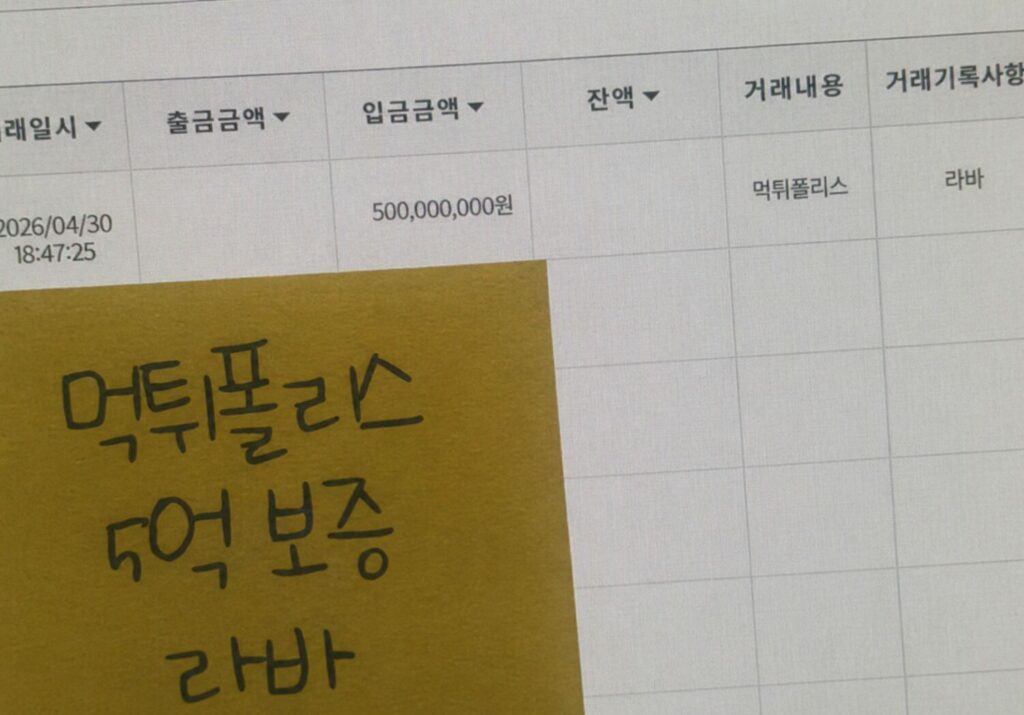 래일시▼ 출금금액▼ 입금금액▼ 잔액▼ 거래내용 거래기록사항
2026/04/30 18:47:25 500,000,000원 먹튀폴리스 라바
먹튀폴리스
5억 보증
라바